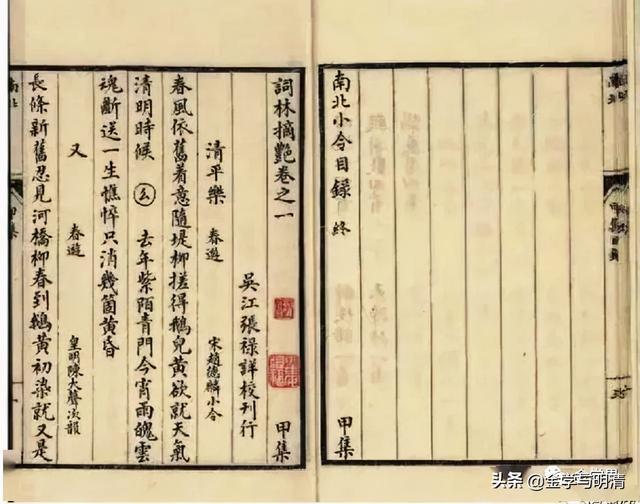 甲集目錄
南北小令目錄 終 甲集
詞林摘艷卷之一 甲集
吳江張祿詳校刊行
清平樂 春遊 宋趙德麟小令
春風依舊着意隨堤柳搓得鵝兒黃欲就天氣
清明時候 幺 去年紫陌青門今宵雨魄雲
魂斷送一生憔悴只消幾箇黃昏
又 春遊 皇明陳大聲次韻
長條新舊忍見河橋柳春到鵝黃初染就又是
南北 甲集 一
头条 @金学与明清